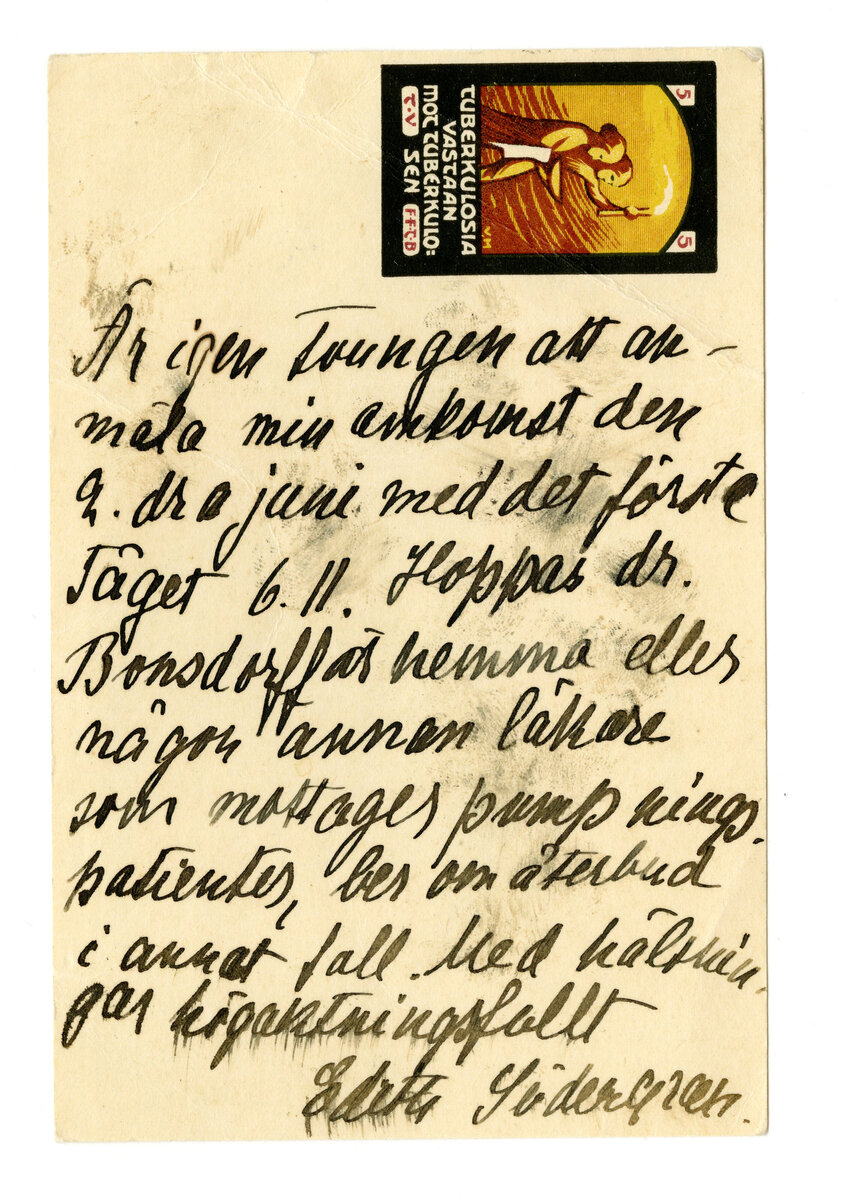 5 5
TUBERKULOSIA
VASTAAN
MOT TUBERKULO:
T·V SEN FFTB
VM
Är igen tvungen att an-
mäla min ankomst den
2. dra juni med det första
tåget 6.11. Hoppas dr.
Bonsdorff är hemma eller
någon annan läkare
som mottager pumpnings.
patienter, ber om återbud
i annat fall. Med hälsnin.
gar högaktningsfullt
Edith Södergran.